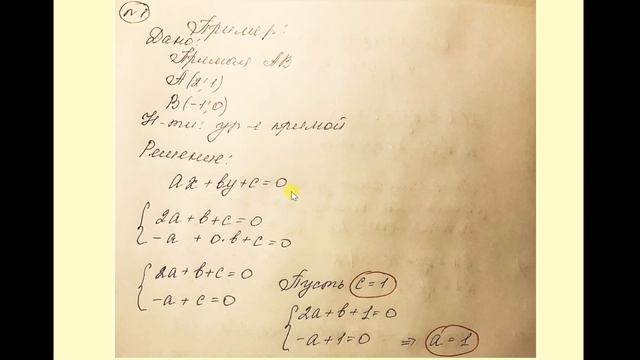 №1
Пример:
Дано:
Прямая АВ
А(2;1)
В(-1;0)
Н-ти: ур-е прямой
Решение:
ax + by + c = 0
{ 2a + b + c = 0
-a + 0·b + c = 0
{ 2a + b + c = 0
-a + c = 0
Пусть c = 1
{ 2a + b + 1 = 0
-a + 1 = 0 ⇒ a = 1